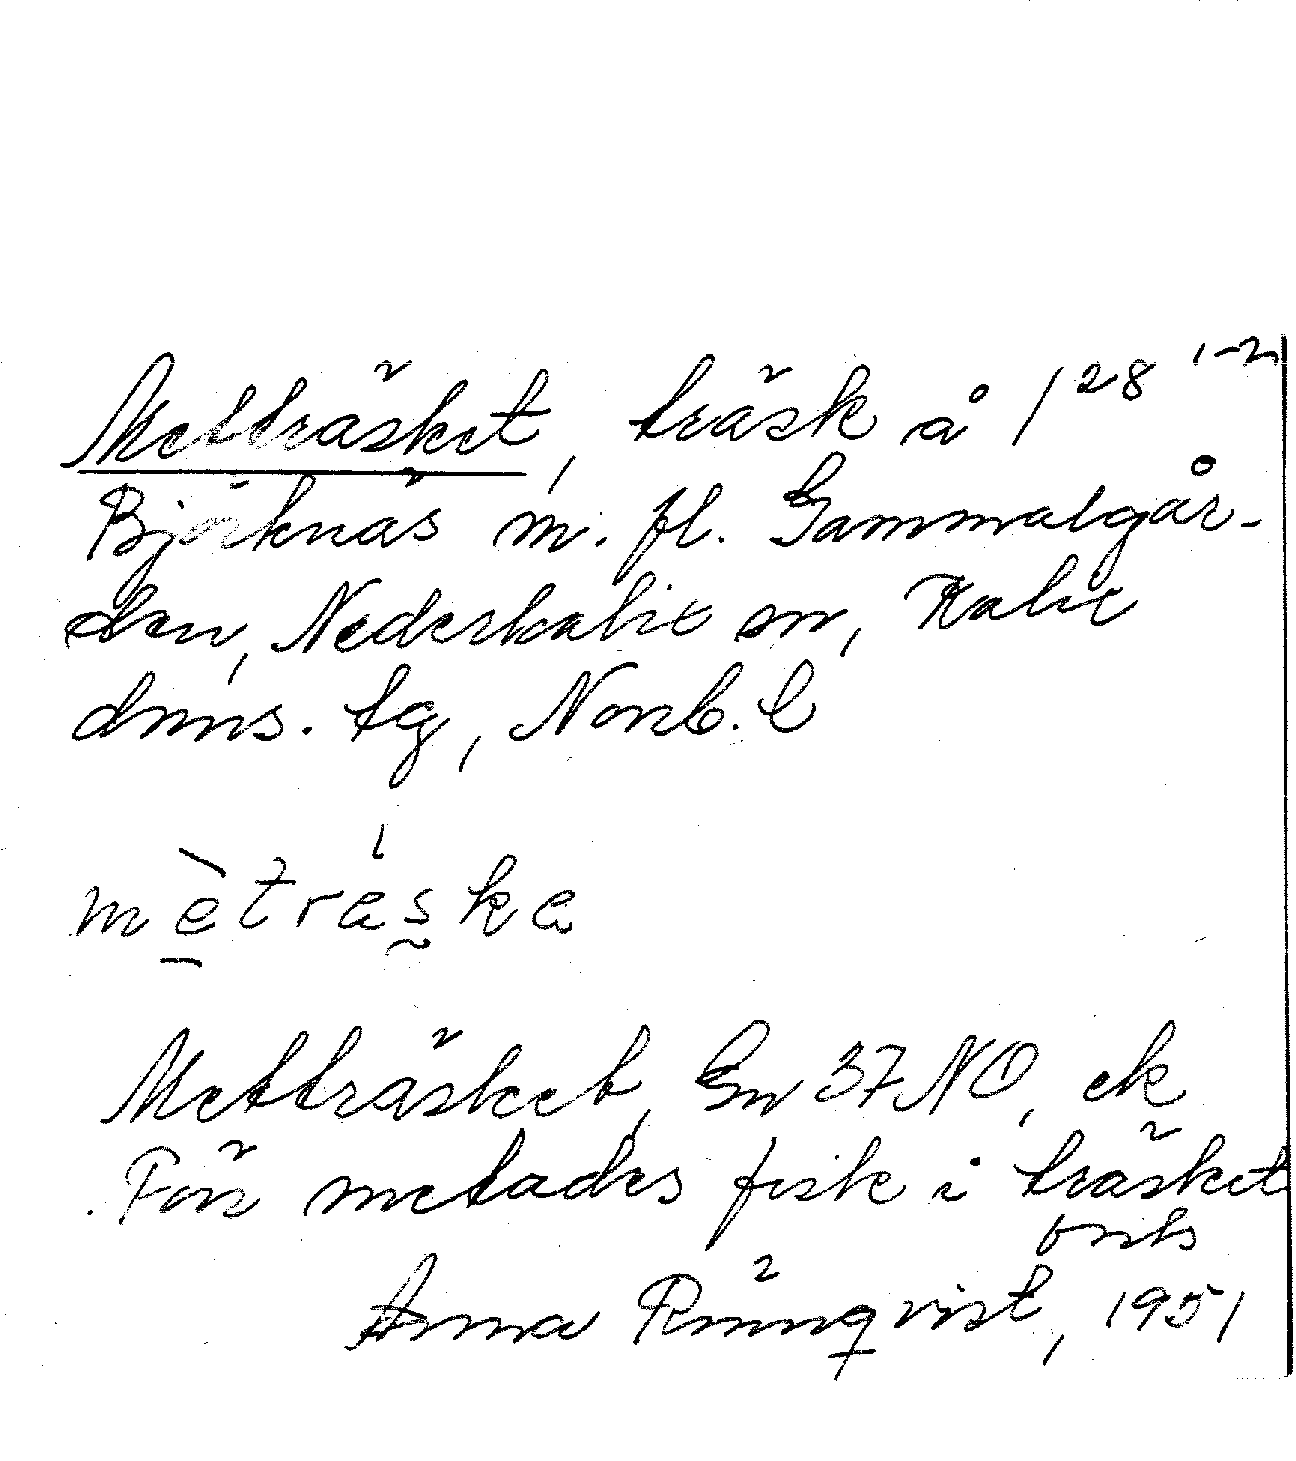 Metträsket, träsk å 1 28 1-2
Björknäs m. fl. Gammalgår-
den, Nederkalix sn, Kalix
dms. tg, Norrb. l
mètráska
Metträsket, Gn 37 NO, ek
Förr metades fisk i träsket
orsb
Anna Rönnqvist, 1951